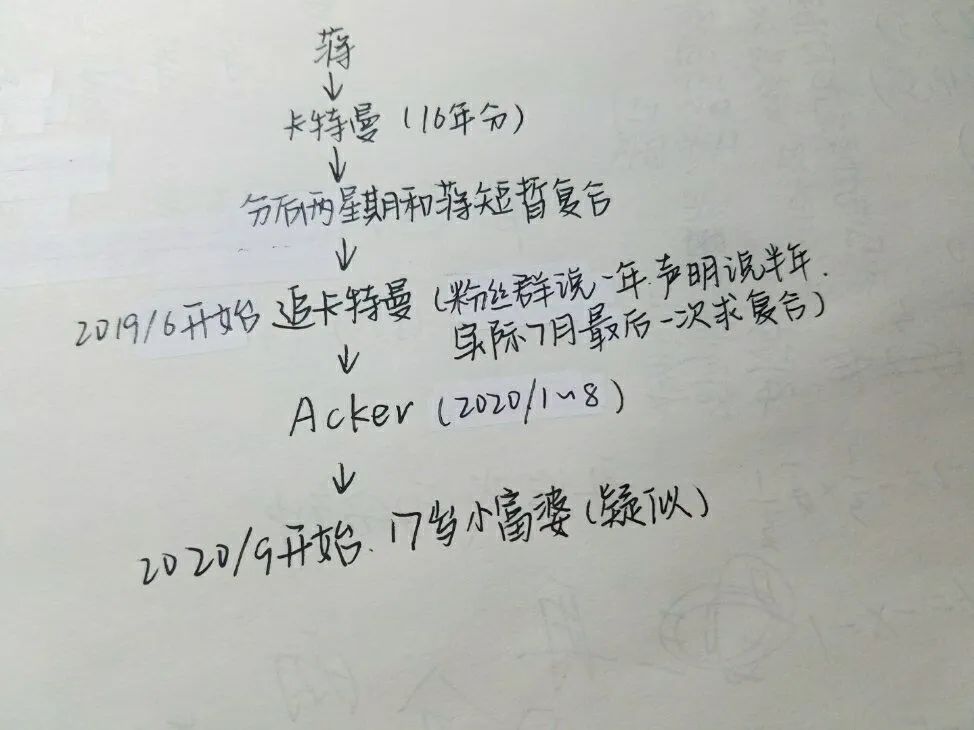 蒋
↓
卡特曼（16年分）
↓
分后俩星期和蒋短暂复合
↓
2019/6开始 追卡特曼（粉丝群说一年.声明说半年.
实际7月最后一次求复合）
↓
Acker（2020/1~8）
↓
2020/9开始. 17岁小富婆（疑似）